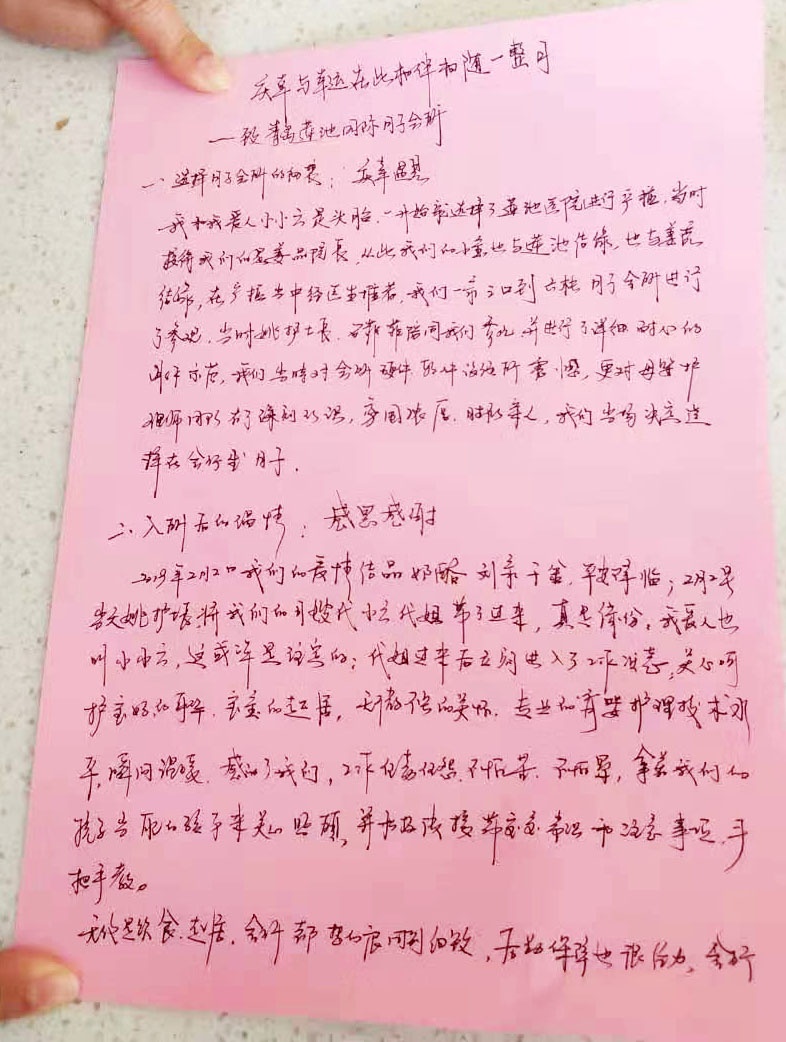 庆幸与幸运在此相伴相随一整月
一致青岛莲池国际月子会所
一、选择月子会所的初衷：庆幸遇见
我和我爱人小小云是头胎，一开始就选择了莲池医院进行产检，当时
接待我们的是姜品院长，从此我们的小宝也与莲池结缘，也与姜院
结缘，在产检当中经医生推荐，我们一家三口到六楼月子会所进行
了参观，当时姚护士长、陪同我们参观，并进行了详细耐心的
我们当时对会所硬件、软件设施所震憾，更对母婴护
理师团队有了深刻认识，氛围浓厚，我们当场决定选
择在会所坐月子。
二、入所后的温情：感恩感谢
2019年2月2日我们的爱情结晶奶酪刘亲千金，平安降临；2月2号
当天姚护士长将我们的月嫂代小云代姐带了过来，真是缘份。我爱人也
叫小小云，这或许是注定的；代姐过来后立刻进入了工作状态，关心呵
护宝妈的、宝宝的起居，无微不至的关怀、专业的育婴护理技术水
平，瞬间温暖、感动了我们，工作任劳任怨、不怕累、不怕，拿着我们的
孩子当自己的孩子来关心照顾，并带宝宝常识和注意事项，手
把手教。
无论是饮食、起居，会所都周到细致，后勤保障也很给力，会所